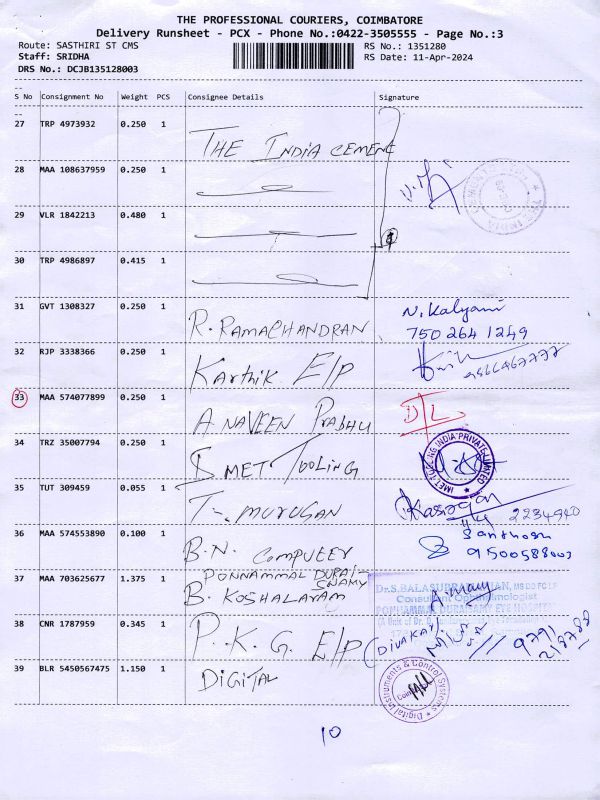 THE PROFESSIONAL COURIERS, COIMBATORE
Delivery Runsheet - PCX - Phone No.:0422-3505555 - Page No.:3
Route: SASTHIRI ST CMS
RS No.: 1351280
Staff: SRIDHA
RS Date: 11-Apr-2024
DRS No.: DCJB135128003
S No Consignment No Weight PCS Consignee Details Signature
27 TRP 4973932 0.250 1 THE INDIA CEMENT
28 MAA 108637959 0.250 1
29 VLR 1842213 0.480 1
30 TRP 4986897 0.415 1
31 GVT 1308327 0.250 1 R. RAMACHANDRAN N. Kalyani
750 264 1249
32 RJP 3338366 0.250 1 Karthik E/P
33 MAA 574077899 0.250 1 A NAVEEN PRABHU D/L
34 TRZ 35007794 0.250 1 IMET TOOLING IMET TOOLING INDIA PRIVATE LIMITED
35 TUT 309459 0.055 1 T. MURUGAN
2234940
36 MAA 574553890 0.100 1 B.N. Santhosh
37 MAA 703625677 1.375 1 PONNAMMAL DURAI-
SWAMY
B. KOSHALARAM
Dr.S.BALASUBRAMANIAN, MS DO FCLF
Consultant Ophthalmologist
PONNAMMAL DURAISAMY EYE HOSPITAL
38 CNR 1787959 0.345 1 P.K.G. E/P (DIVAKAR). 9791
39 BLR 5450567475 1.150 1 DIGITAL Digital Instruments & Control Systems
10